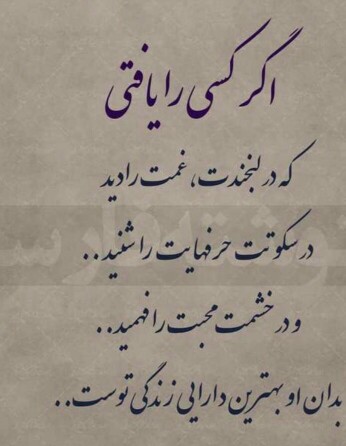 اگر کسی را یافتی
که در لبخندت، غمت را دید
در سکوتت حرفهایت را شنید..
و در خشمت محبت را فهمید..
بدان او بهترین دارایی زندگی توست..